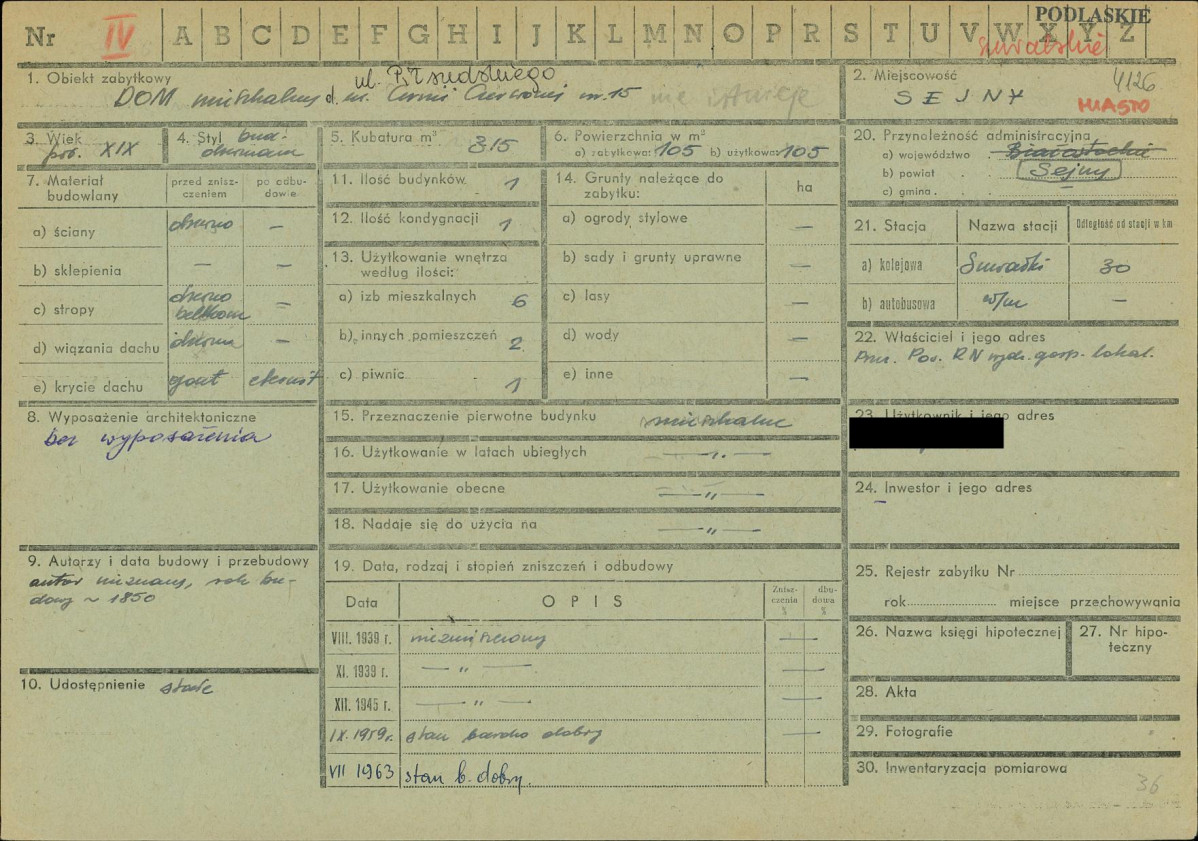 PODLASKIE
Nr IV A B C D E F G H I J K L M N O P R S T U V W X Y Z
suwalskie
1. Obiekt zabytkowy
ul. Piłsudskiego
DOM mieszkalny d. ul. Armii Czerwonej nr. 15 nie istnieje
2. Miejscowość 4126
SEJNY
MIASTO
3. Wiek
poł. XIX
4. Styl bud.
drewniane
5. Kubatura m³ 315
6. Powierzchnia w m²
a) zabytkowa: 105 b) użytkowa: 105
20. Przynależność administracyjna
a) województwo Białostockie
b) powiat Sejny
c) gmina
7. Materiał budowlany
przed zniszczeniem
po odbudowie
a) ściany drewno —
b) sklepienia — —
c) stropy drewno belkowe —
d) wiązania dachu —
e) krycie dachu gont eternit
11. Ilość budynków 1
12. Ilość kondygnacji 1
13. Użytkowanie wnętrza
według ilości:
a) izb mieszkalnych 6
b) innych pomieszczeń 2
c) piwnic 1
14. Grunty należące do
zabytku:
ha
a) ogrody stylowe —
b) sady i grunty uprawne —
c) lasy —
d) wody —
e) inne —
21. Stacja Nazwa stacji Odległość od stacji w km
a) kolejowa Suwałki 30
b) autobusowa w/m —
22. Właściciel i jego adres
Prez. Pow. RN wydz. gosp. lokal.
8. Wyposażenie architektoniczne
bez wyposażenia
15. Przeznaczenie pierwotne budynku mieszkalne
16. Użytkowanie w latach ubiegłych — " —
17. Użytkowanie obecne — " —
18. Nadaje się do użycia na — " —
23. Użytkownik i jego adres
24. Inwestor i jego adres
—
9. Autorzy i data budowy i przebudowy
autor nieznany, rok bu-
dowy ~ 1850
10. Udostępnienie stałe
19. Data, rodzaj i stopień zniszczeń i odbudowy
Data OPIS Zniszczenia % dbudowa %
VIII. 1939 r. niezniszczony —
XI. 1939 r. — " — —
XII. 1945 r. — " — —
IX. 1959 r. stan bardzo dobry —
VII 1963 stan b. dobry.
25. Rejestr zabytku Nr
rok miejsce przechowywania
26. Nazwa księgi hipotecznej
27. Nr hipo-
teczny
28. Akta
29. Fotografie
30. Inwentaryzacja pomiarowa
36